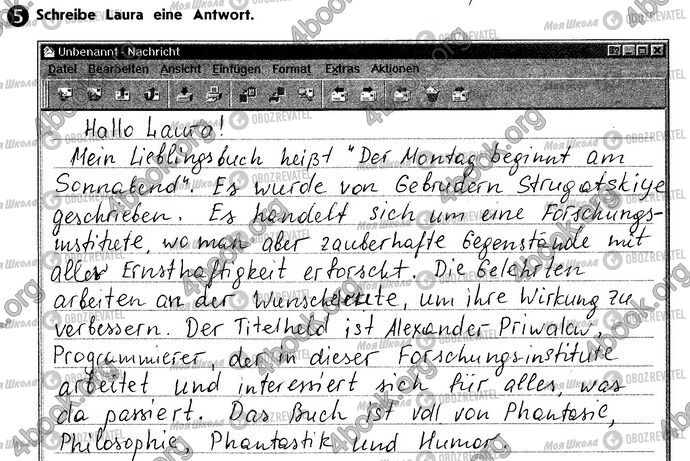 5 Schreibe Laura eine Antwort.
Unbenannt - Nachricht
Datei Bearbeiten Ansicht Einfügen Format Extras Aktionen
Hallo Laura!
Mein Lieblingsbuch heißt "Der Montag beginnt am
Sonnabend". Es wurde von Gebrüdern Strugatskiye
geschrieben. Es handelt sich um eine Forschungs-
institute, wo man aber zauberhafte Gegenstände mit
aller Ernsthaftigkeit erforscht. Die Gelehrten
arbeiten an der Wunschrute, um ihre Wirkung zu
verbessern. Der Titelheld ist Alexander Priwalow,
Programmierer, der in dieser Forschungsinstitute
arbeitet und interessiert sich für alles, was
da passiert. Das Buch ist voll von Phantasie,
Philosophie, Phantastik und Humor.